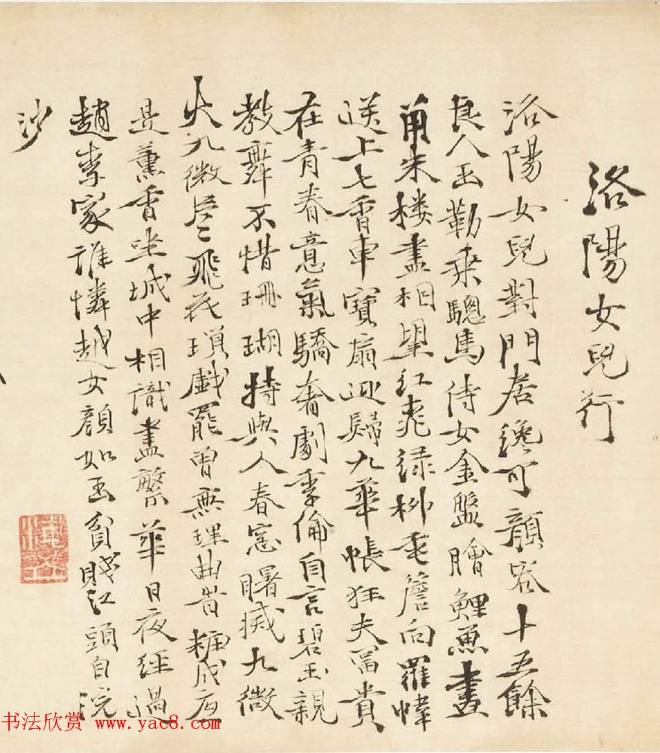 洛陽女兒行
洛陽女兒對門居纔可顏容十五餘
良人玉勒乘驄馬侍女金盤膾鯉魚畫
閣朱樓盡相望紅桃綠柳垂簷向羅幃
送上七香車寶扇迎歸九華帳狂夫富貴
在青春意氣驕奢劇季倫自言碧玉親
教舞不惜珊瑚持與人春窓曙滅九微
火九微片〻飛花瑣戲罷曾無理曲旹糚成
是薰香坐城中相識盡繁華日夜經過
趙李家誰憐越女顏如玉貧賤江頭自浣
沙
书法欣赏 www.yac8.com